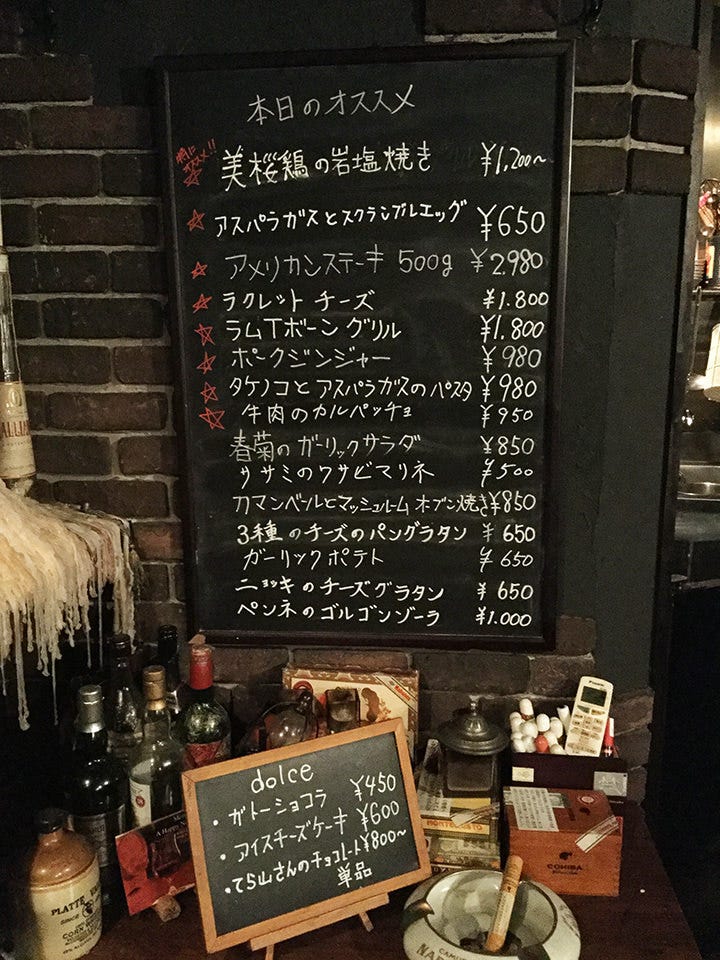 本日のオススメ
特に
オススメ!!
☆ 美桜鶏の岩塩焼き ¥1,200~
☆ アスパラガスとスクランブルエッグ ¥650
☆ アメリカンステーキ 500g ¥2.980
☆ ラクレットチーズ ¥1.800
☆ ラムTボーングリル ¥1.800
☆ ポークジンジャー ¥980
☆ タケノコとアスパラガスのパスタ ¥980
☆ 牛肉のカルパッチョ ¥950
春菊のガーリックサラダ ¥850
ササミのワサビマリネ ¥500
カマンベールとマッシュルームオーブン焼き ¥850
3種のチーズのパングラタン ¥650
ガーリックポテト ¥650
ニョッキのチーズグラタン ¥650
ペンネのゴルゴンゾーラ ¥1.000
dolce
・ガトーショコラ ¥450
・アイスチーズケーキ ¥600
・てら山さんのチョコレート ¥800~
単品
COHIBA
PLATTE
SINCE
CORN